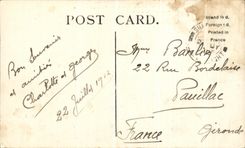 POST CARD.
Inland ½ d.
Foreign 1 d.
Printed in
France
Bon Souvenir
et amitiés
Charlotte et Georges
22 Juillet
22 Rue Bordelaise
Pauillac
France
Gironde